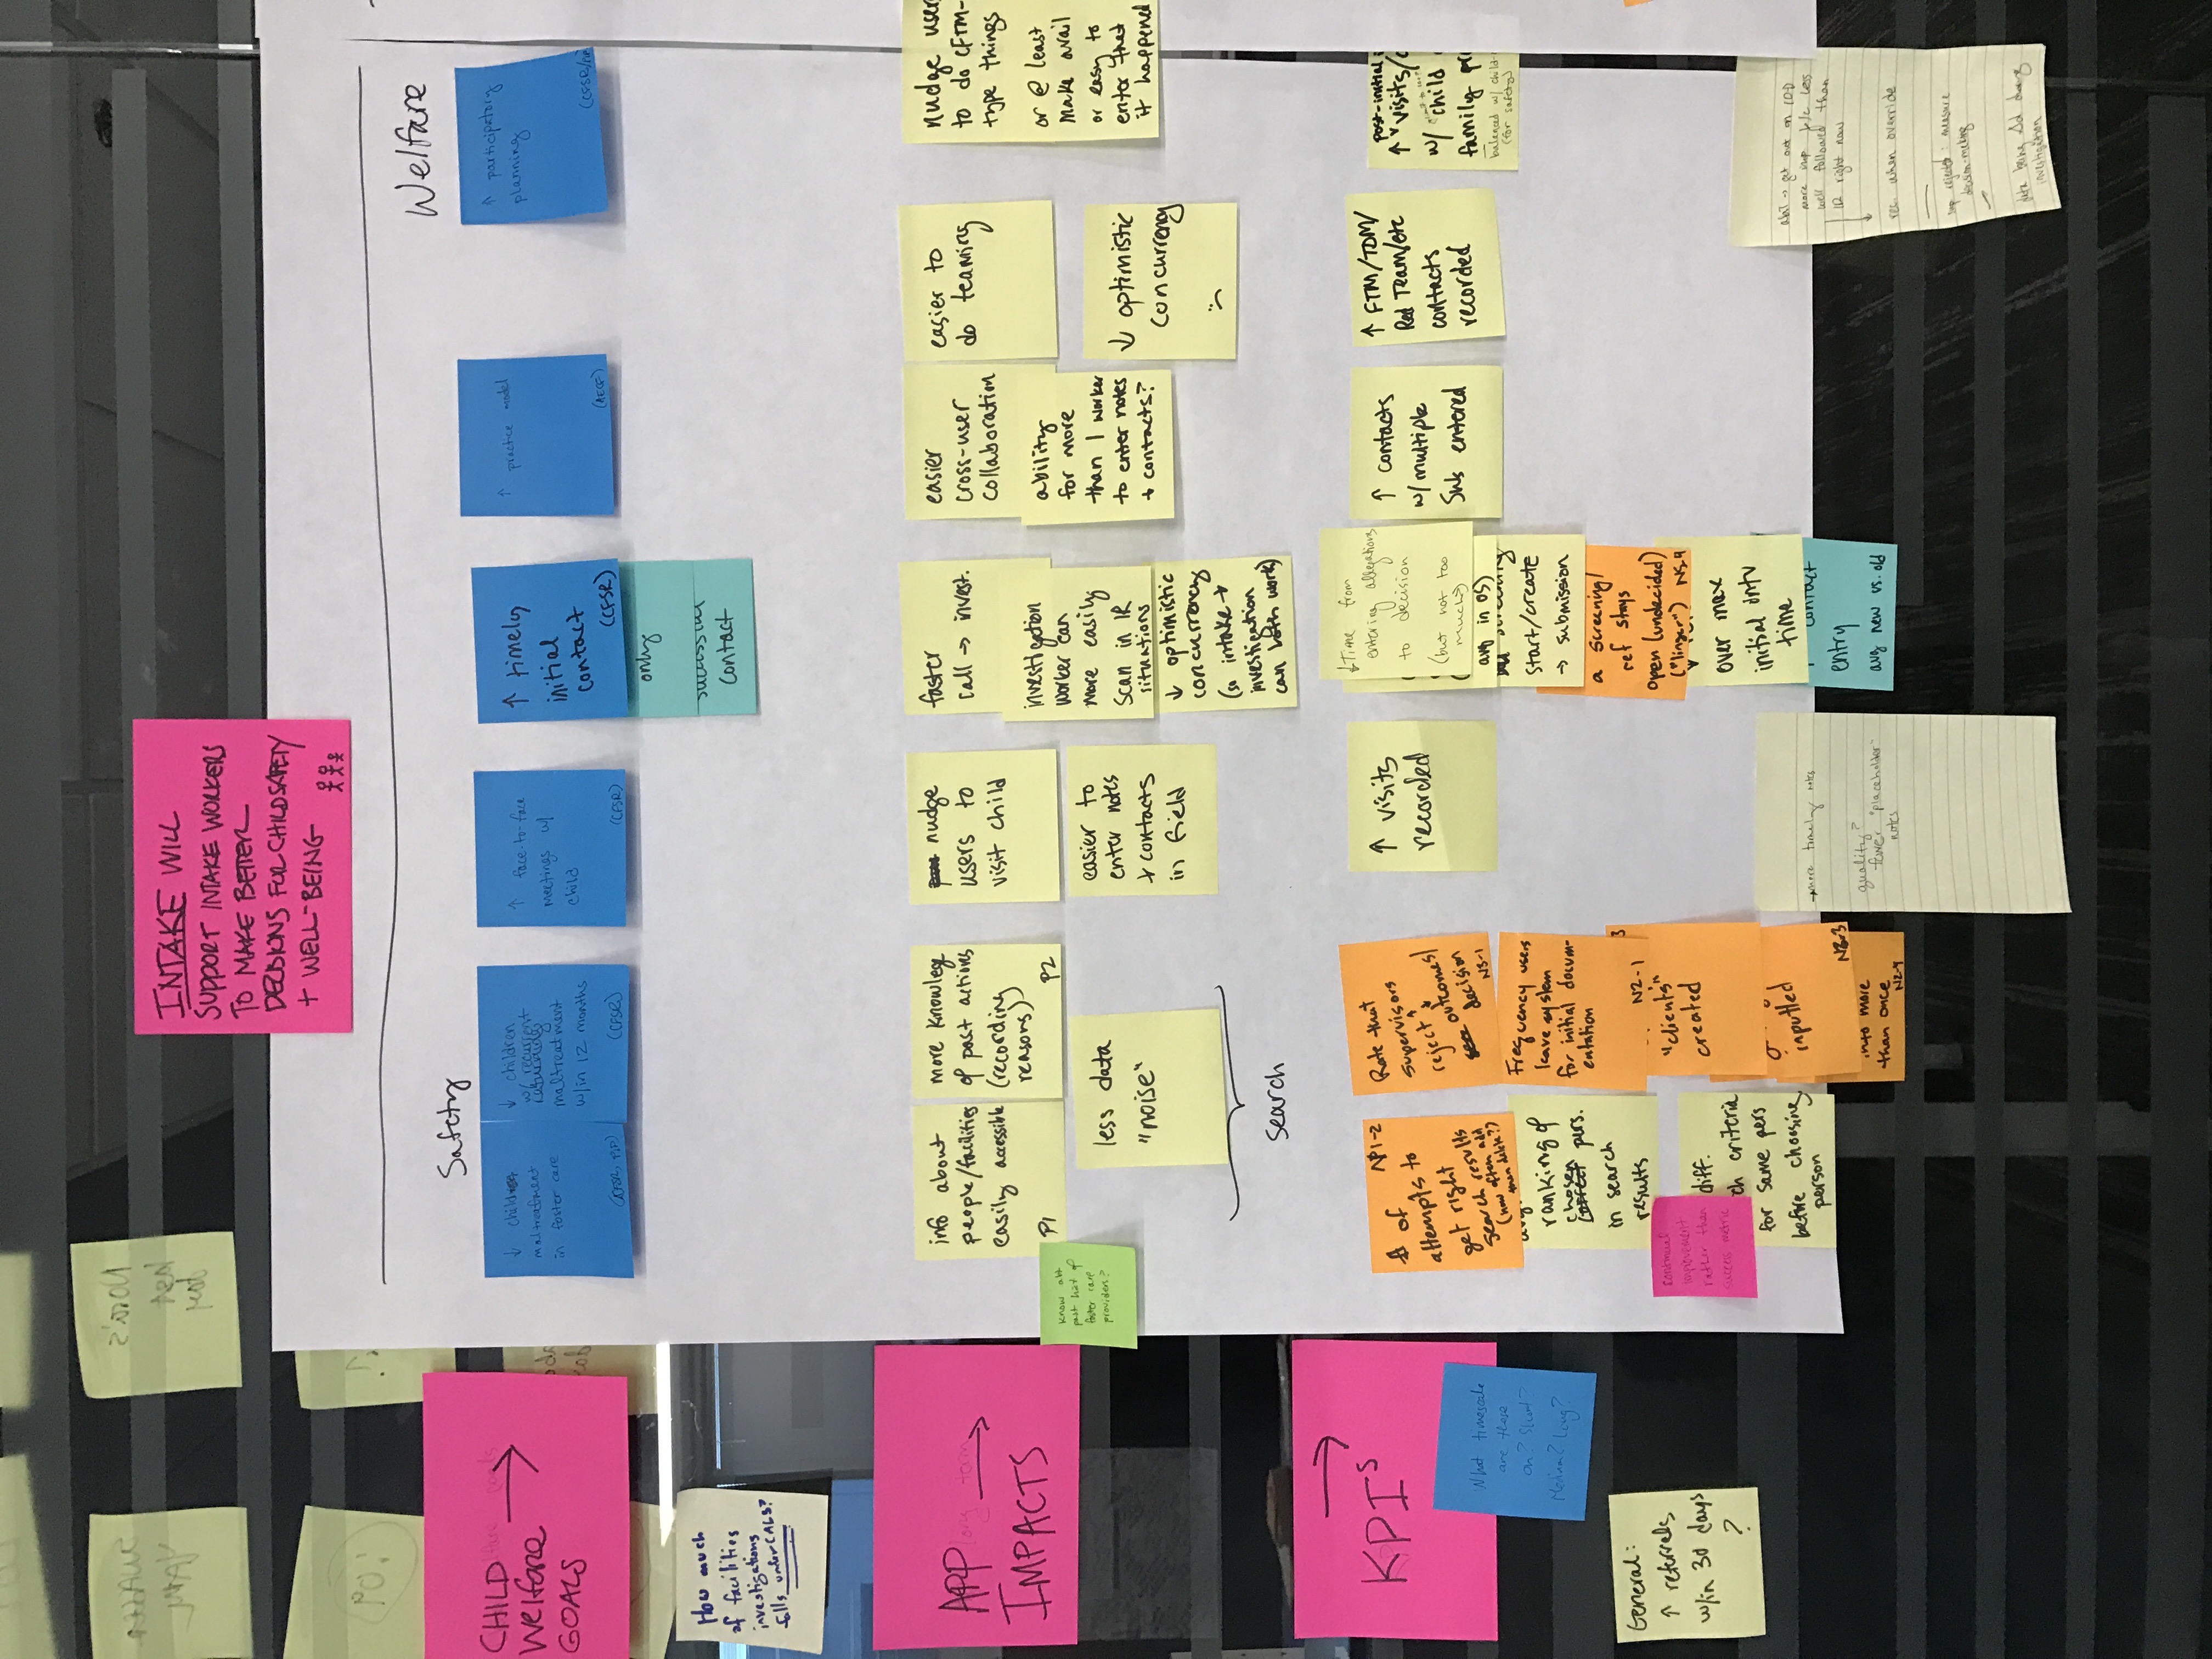 Nora's
last
day
:09
INTAKE WILL
SUPPORT INTAKE WORKERS
TO MAKE BETTER
DECISIONS FOR CHILD SAFETY
+ WELL-BEING
Safety
Welfare
CHILD
Welfare
GOALS
↓ child
maltreatment
in foster care
(CFSR, PIP)
↓ children
w/ recurrent
maltreatment
w/in 12 months
(CFSR)
↑ face-to-face
meetings w/
child
(CFSR)
↑ timely
initial
contact
(CFSR)
only
successful
contact
↑ practice model
(AECF)
↑ participatory
planning
How much
of facilities
investigations
falls under CALS?
APP
long term
IMPACTS
info about
people/facilities
easily accessible
P1
more knowlege
of past actions
(recording
reasons)
P2
know abt
past hist of
foster care
providers?
less data
"noise"
Search
nudge
users to
visit child
easier to
enter notes
+ contacts
in field
faster
call → invest.
investigation
worker can
more easily
scan in IR
situations
↓ optimistic
concurrency
(so intake +
investigation
can both work)
easier
cross-user
collaboration
ability
for more
than 1 worker
to enter notes
+ contacts?
easier to
do teaming
↓ optimistic
concurrency
nudge users
to do CFTM-
type things
or @ least
make avail
or easy to
enter that
it happened
KPIs
What timescale
are these
on? Short?
Medium? Long?
General:
↑ referrals
w/in 30 days
?
NP1-2
# of
attempts to
get right
search results
(how often add
then delete?)
ranking of
chosen
correct pers.
in search
results
continual
improvement
rather than
success metric
diff.
criteria
for same pers
before choosing
person
Rate that
supervisors
reject
outcomes/
decision
N5-1
Frequency users
leave system
for initial docum-
entation
N2-1
3
"clients"
created
inputted
N2-3
info more
than once
N2-4
↑ visits
recorded
more timely notes
quality?
fewer "placeholder"
notes
↓ Time from
entering allegations
to decision
(but not too
much)
avg in OS)
screening
start/create
→ submission
a screening/
ref stays
open (undecided)
("linger") N5-4
over max
initial intv
time
↑ contact
entry
avg new vs. old
↑ contacts
w/ multiple
SWs entered
↑ FTM/TDM/
Red Team/etc
contacts
recorded
post-initial
↑ visits/
w/ child
family
balanced w/ child
(for safety)
get out on 10-D
more imp b/c less
well followed than
IR right now
rec. when override
measure
decision-making
data being Δd during
investigation